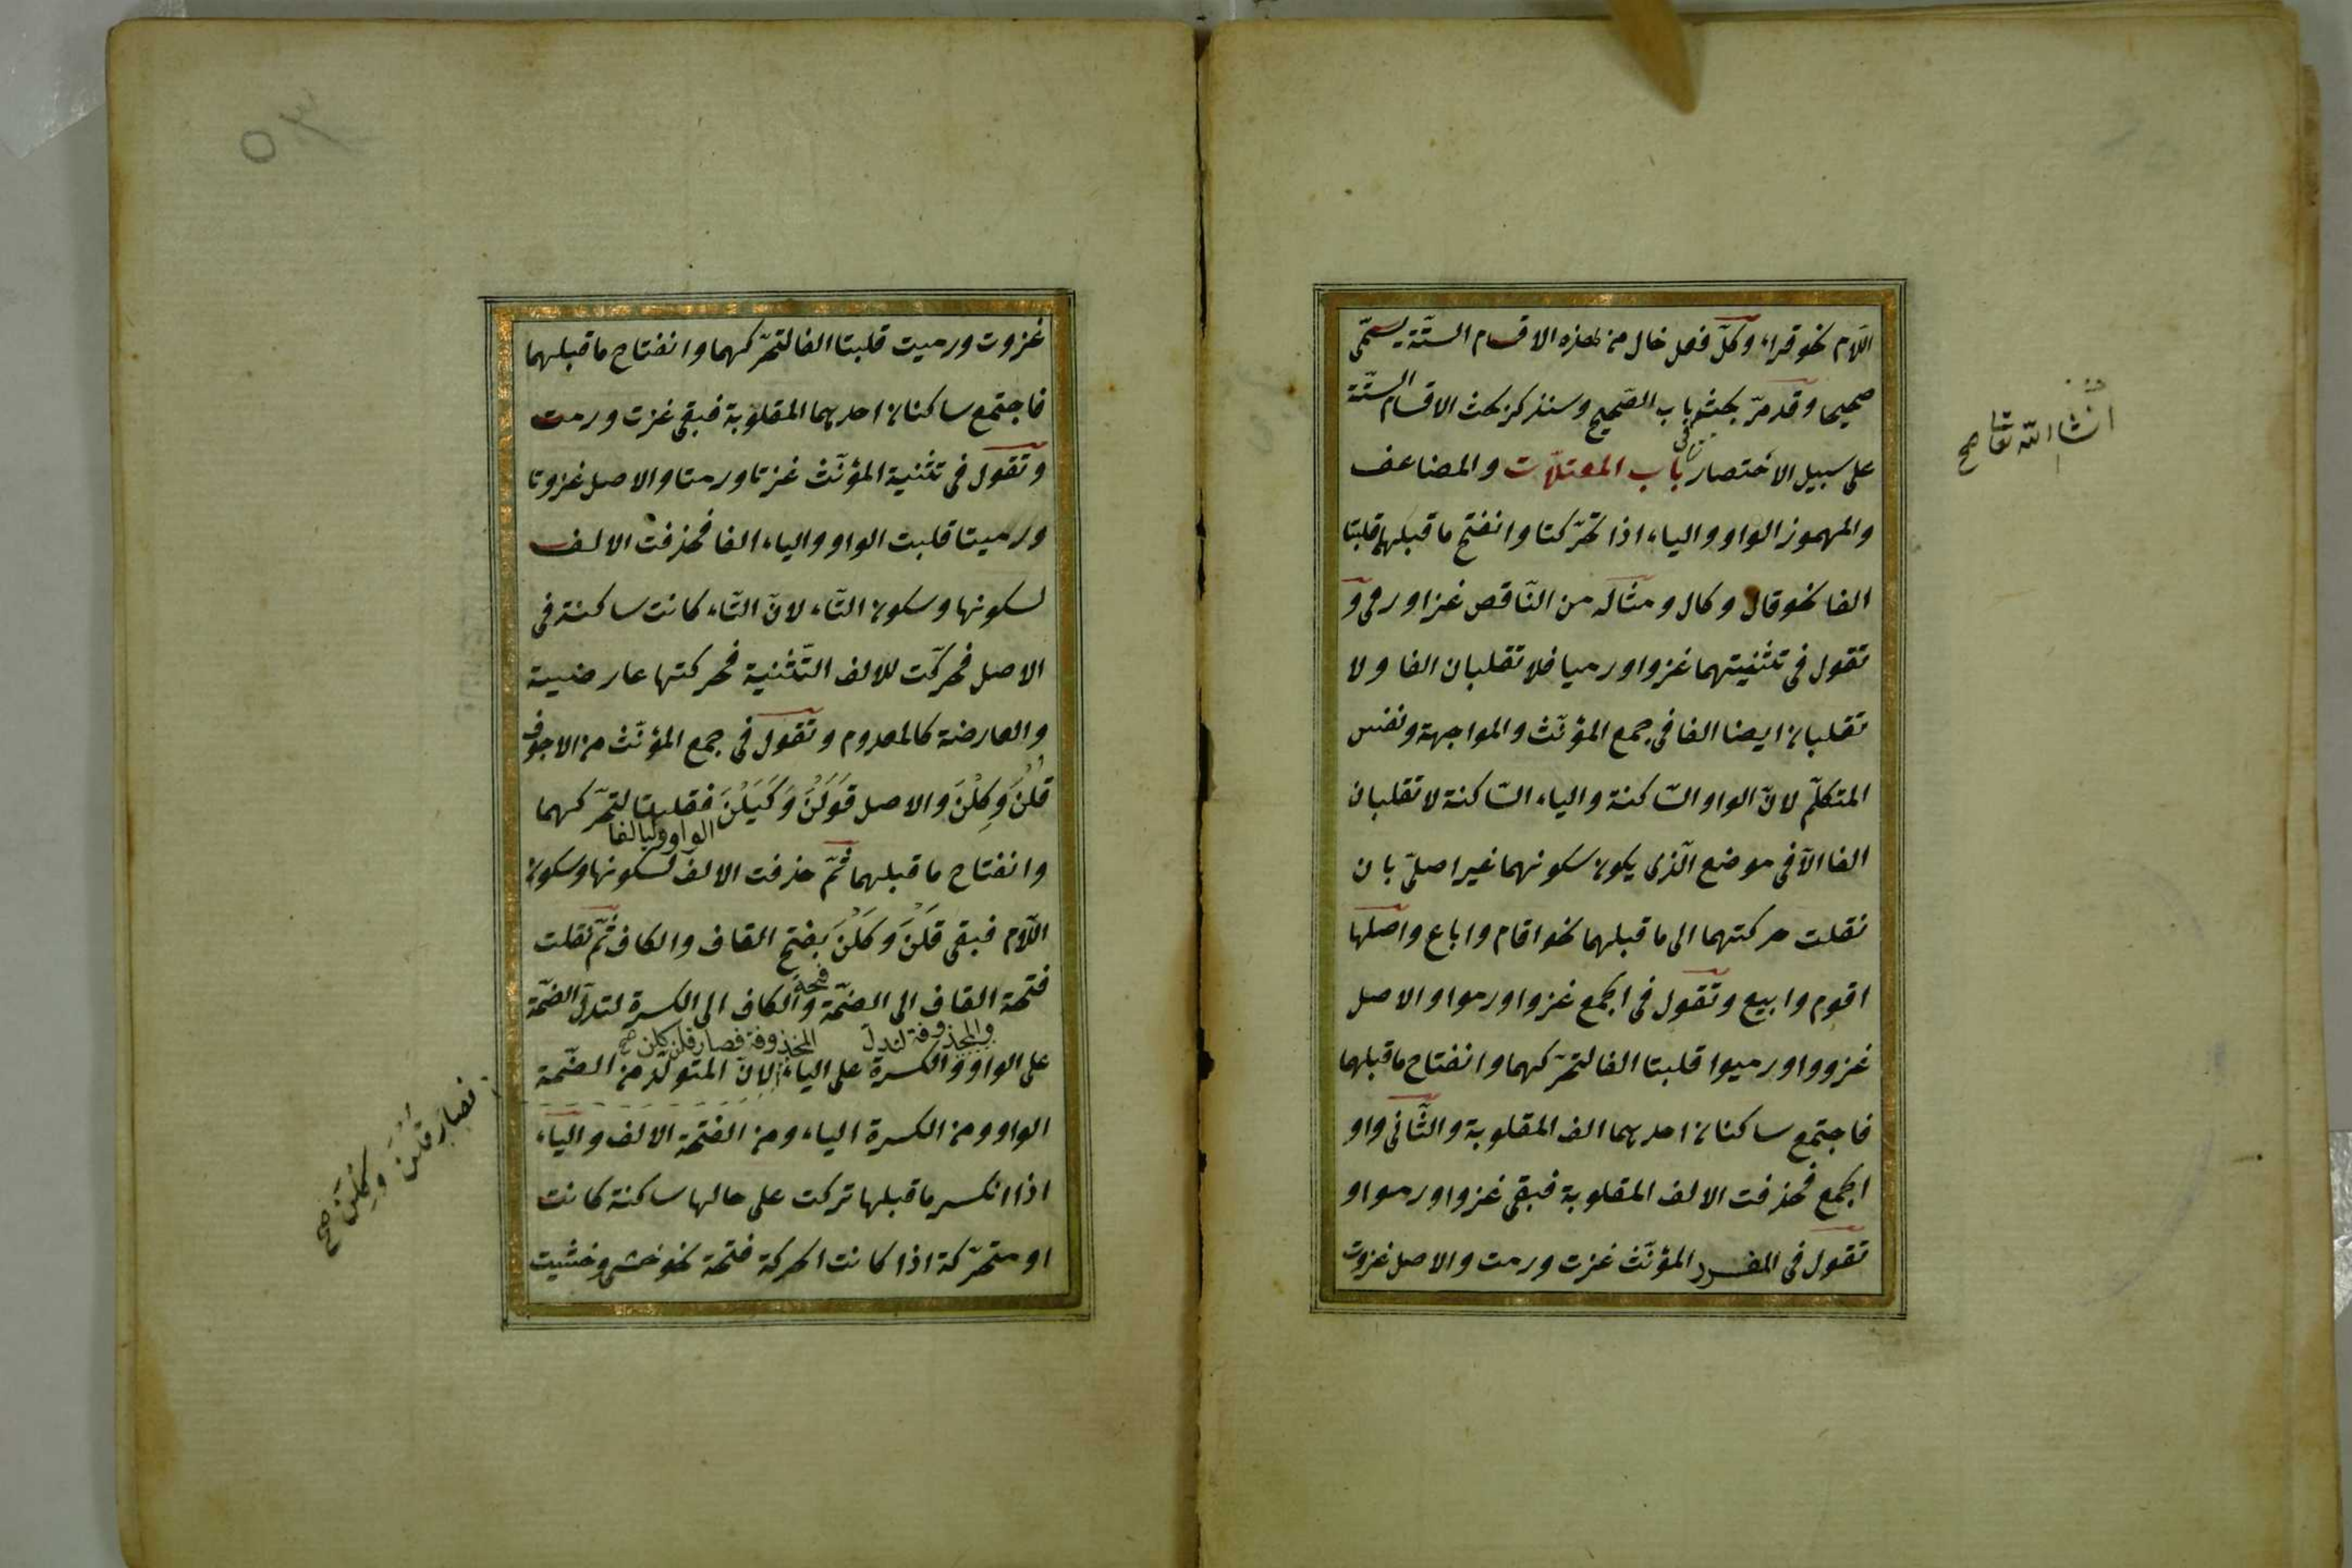 اللّام نحو قراء وكلّ فعل خال من هذه الاقسام الستّة يسمّى
صحيحا وقد مرّ بحثه باب الصّحيح وسنذكر بحث الاقسام الستّة
فى
انشاالله تعا صح
على سبيل الاختصار باب المعتلّات والمضاعف
والمهموز الواو والياء اذا تحرّكتا وانفتح ما قبلهما قلبتا
الفا نحو قال وكال ومثاله من النّاقص غزا ورمى و
تقول فى تثنيتهما غزوا ورميا فلا تقلبان الفا ولا
تقلبان ايضا الفا فى جمع المؤنّث والمواجهة ونفس
المتكلّم لانّ الواو السّاكنة والياء السّاكنة لا تقلبان
الفا الّا فى موضع الّذى يكون سكونهما غير اصلىّ بان
نقلت حركتهما الى ما قبلهما نحو اقام واباع واصلها
اقوم وابيع وتقول فى الجمع غزوا ورموا والاصل
غزووا ورميوا قلبتا الفا لتحرّكهما وانفتاح ما قبلهما
فاجتمع ساكنان احديهما الف المقلوبة والثّانى واو
الجمع فحذفت الالف المقلوبة فبقى غزوا ورموا و
تقول فى المفرد المؤنّث غزت ورمت والاصل غزوت
٥٣
غزوت ورميت قلبتا الفا لتحرّكهما وانفتاح ما قبلهما
فاجتمع ساكنان احديهما المقلوبة فبقى غزت ورمت
وتقول فى تثنية المؤنّث غزتا ورمتا والاصل غزوتا
ورميتا قلبت الواو والياء الفا فحذفت الالف
لسكونها وسكون التّاء لانّ التّاء كانت ساكنة فى
الاصل فحركّت للالف التّثنية فحركتها عارضية
والعارضة كالمعدوم وتقول فى جمع المؤنّث من الاجوف
قُلْنَ وَكِلْنَ والاصل قَوَلْنَ وَكَيَلْنَ فقلبتا لتحرّكهما
الواو واليا الفا
وانفتاح ما قبلهما ثمّ حذفت الالف لسكونها وسكون
اللّام فبقى قَلْنَ وَكَلْنَ بفتح القاف والكاف ثمّ نقلت
فتحة القاف الى الضمّة والكاف الى الكسرة لتدلّ الضمّة
فتحة
المحذوفة لتدلّ المحذوفة فصار قلن كلن صح
على الواو والكسرة على الياء لانّ المتولّد من الضّمة
فصار قُلْنَ وَكِلْنَ صح
الواو ومن الكسرة الياء ومن الفتحة الالف والياء
اذا انكسر ما قبلها تركت على حالها ساكنة كانت
او متحرّكة اذا كانت الحركة فتحة نحو خشى وخشيت